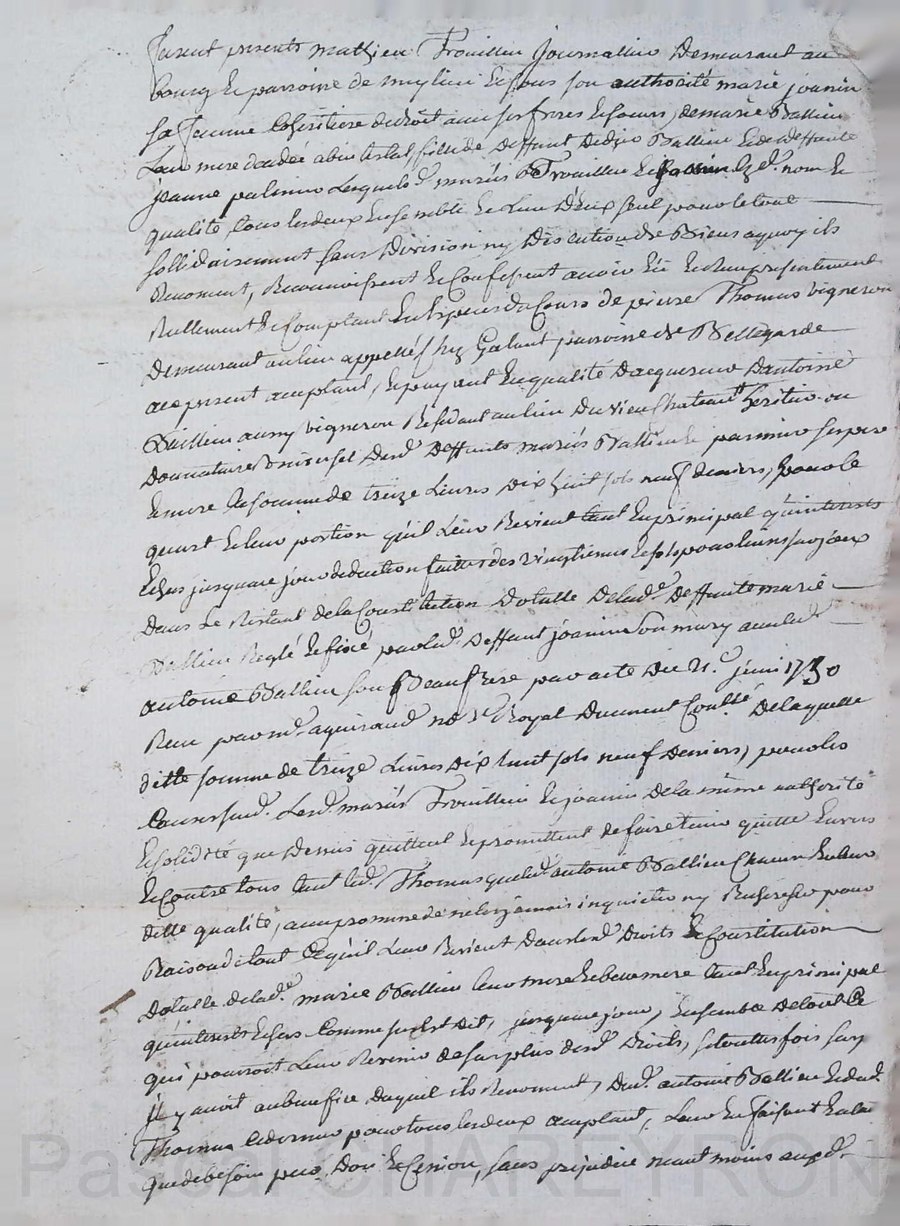 furent presents mathieu Trouillieu Journallier Demeurant au
bourg & parroisse de & sous son authorité marie joanin
sa femme Cohéritiere de droit avec ses freres & soeurs, de marie Vallieu
Leur mere decedée abintestat fille de Deffunt Vallieu & de deffunte
jeanne lesquels d. mariés Trouillieu & joanin d. nom &
qualité tous les deux Ensemble & L'un D'eux seul pour le tout
sollidairement sans Division ny Discution de Biens aquoy ils
Renoncent, Reconnoissent & Confessent avoir Eû & Receu presentement
Reellement & Comptant En Especes du Cours de pierre Thomas vigneron
Demeurant au lieu appellé chez Galant parroisse de Bellegarde
ace present acceptant, & payant En qualité D'acquereur D'antoine
Vallieu aussy vigneron Residant au lieu Du vieu chateau heritier ou
Donnataire universel Desd. Deffunts mariés Vallieu & ses pere
& mere la somme de treize Livres Dix huit sols neuf deniers, pour le
quart & leur portion qu'il Leur Revient tant En principal qu'interests
Echus jusqu'a ce jour deduction faitte des vingtiemes & sols pour livre sur iceux
Dans Le Restant de la Constitution Dotalle De lad. Deffunte marie
Vallieu Reglé & fixé par led. Deffunt joanin son mary avec led.
antoine Vallieu son Beaufrere par acte Du 21. juin 1730
Receu par m. no.re Royal Duement Contlé De laquelle
ditte somme de treize Livres Dix huit sols neuf Deniers, pour les
Causes susd. Lesd. mariés Trouillieu & joanin de la même authorité
& solidité que Dessus quittent & promettent de faire tenir quitte Envers
& Contre tous tant led. Thomas que led. antoine Vallieu Chacun En leur
ditte qualité, avec promesse de ne les jamais inquietter ny Rechercher pour
Raison de tout Ce qu'il Leur Revient Dans lesd. Droits & Constitution
Dotalle de lad. marie Vallieu leur mere & belle mere tant En principal
qu'interests Echus Comme sus Est Dit, jusqu'a ce jour, Ensemble De tout Ce
qui pourroit Leur Revenir de surplus desd. Droits, si toutes fois sur
il y avoit au benefice duquel ils Renoncent, Dud. antoine Vallieu & dud.
Thomas ce dernier pour tous les deux acceptant, Leur En faisant
que de besoin pure Don & Cession, sans prejudice neant moins auxd.
Pascal CHAREYRON